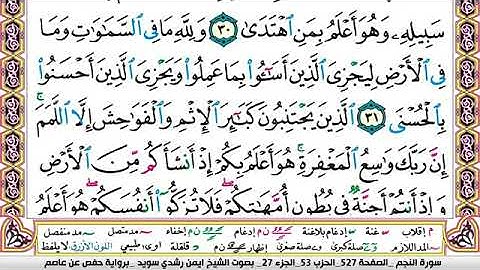 سَبِيلِهِۦ وَهُوَ أَعْلَمُ بِمَنِ ٱهْتَدَىٰ ٣٠ وَلِلَّهِ مَا فِى ٱلسَّمَٰوَٰتِ وَمَا
فِى ٱلْأَرْضِ لِيَجْزِىَ ٱلَّذِينَ أَسَٰٓـُٔوا۟ بِمَا عَمِلُوا۟ وَيَجْزِىَ ٱلَّذِينَ أَحْسَنُوا۟
بِٱلْحُسْنَى ٣١ ٱلَّذِينَ يَجْتَنِبُونَ كَبَٰٓئِرَ ٱلْإِثْمِ وَٱلْفَوَٰحِشَ إِلَّا ٱللَّمَمَ ۚ
إِنَّ رَبَّكَ وَٰسِعُ ٱلْمَغْفِرَةِ ۚ هُوَ أَعْلَمُ بِكُمْ إِذْ أَنشَأَكُم مِّنَ ٱلْأَرْضِ
وَإِذْ أَنتُمْ أَجِنَّةٌ فِى بُطُونِ أُمَّهَٰتِكُمْ ۖ فَلَا تُزَكُّوٓا۟ أَنفُسَكُمْ ۖ هُوَ أَعْلَمُ
م إقلاب غنة إدغام بلاغنة ن م إدغام ن م إخفاء مد متصل مد منفصل
المد اللازم صلة كبرى صلة صغرى إظهار ن م قلقلة اوى طبيعي اللون الأزرق لا يلفظ
سورة النجم _الصفحة 527_ الحزب 53_ الجزء 27_ بصوت الشيخ ايمن رشدي سويد _برواية حفص عن عاصم